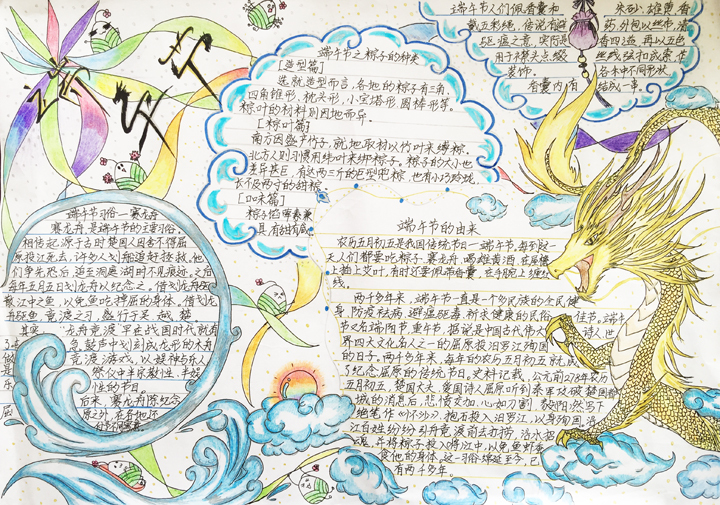 端午节
端午节之粽子的种类
[造型篇]
选就造型而言,各地的粽子有三角、
四角锥形、枕头形、小宝塔形、圆棒形等。
粽叶的材料则因地而异。
[粽叶篇]
南方因盛产竹子,就地取材以竹叶来缚粽。
北方人则习惯用苇叶来绑粽子。粽子的大小也
差异甚巨,有达两三斤的巨型兜粽,也有小巧玲珑,
长不及两寸的甜粽。
[口味篇]
粽子馅荤素兼
具有甜有咸。
端午节人们佩香囊和
戴五彩绳,传说有避
邪驱瘟之意,实际是
用于襟头点缀
装饰。
香囊内有
朱砂、雄黄、香
药,外包以丝布,清
香四溢,再以五色
丝线弦扣成索,作
各种不同形状
结成一串。
端午节习俗一赛龙舟
赛龙舟,是端午节的主要习俗。
相传起源于古时楚国人因舍不得屈
原投江死去,许多人划船追赶拯救。他
们争先恐后,追至洞庭湖时不见痕迹。之后
每年五月五日划龙舟以纪念之。借划龙舟驱
散江中之鱼,以免鱼吃掉屈原的身体。
竞渡之习,盛行于吴、越、楚。
其实,“龙舟竞渡”早在战国时代就有
了。
急鼓声中划刻成龙形的
竞渡游戏,以娱神与乐人
祭仪中半宗教性、半娱
乐性的节目。
后来,赛龙舟除纪念
屈原之外,在各地还
端午节的由来
农历五月初五是我国传统节日一端午节,每到这一
天人们都要吃粽子、赛龙舟、喝雄黄酒、在屋檐
上插上艾叶,有时还要佩带香囊,在手腕上缠丝
线。
两千多年来,端午节一直是一个多民族的全民健
身、防疫祛病、避瘟驱毒、祈求健康的民俗佳节,端午
节又名端阳节、重午节,据说是中国古代伟大诗人、世
界四大文化名人之一的屈原投汨罗江殉国
的日子。两千多年来,每年的农历五月初五就成
了纪念屈原的传统节日。史料记载,公元前278年农历
五月初五,楚国大夫、爱国诗人屈原听到秦军攻破楚国都
城的消息后,悲愤交加,心如刀割,毅然写下
绝笔作《怀沙》,抱石投入汨罗江,以身殉国。沿
江百姓纷纷引舟竞渡前去打捞,沿水招
魂,并将粽子投入江中,以免鱼虾蚕
食他的身体。这一习俗绵延至今,已
有两千多年。